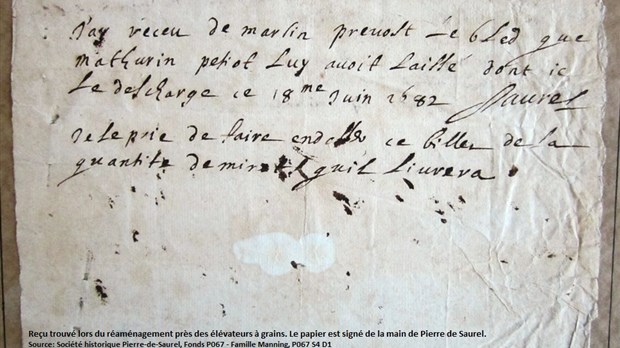 J'ay receu de marlin prevost Le bled que
mathurin petiot Luy avoit Laissé dont ie
Le descharge ce 18me Juin 1682 Saurel
Je Le prie de faire endosser ce billet de La
quantité de quil Livrera
Reçu trouvé lors du réaménagement près des élévateurs à grains. Le papier est signé de la main de Pierre de Saurel.
Source: Société historique Pierre-de-Saurel, Fonds P067 - Famille Manning, P067 S4 D1